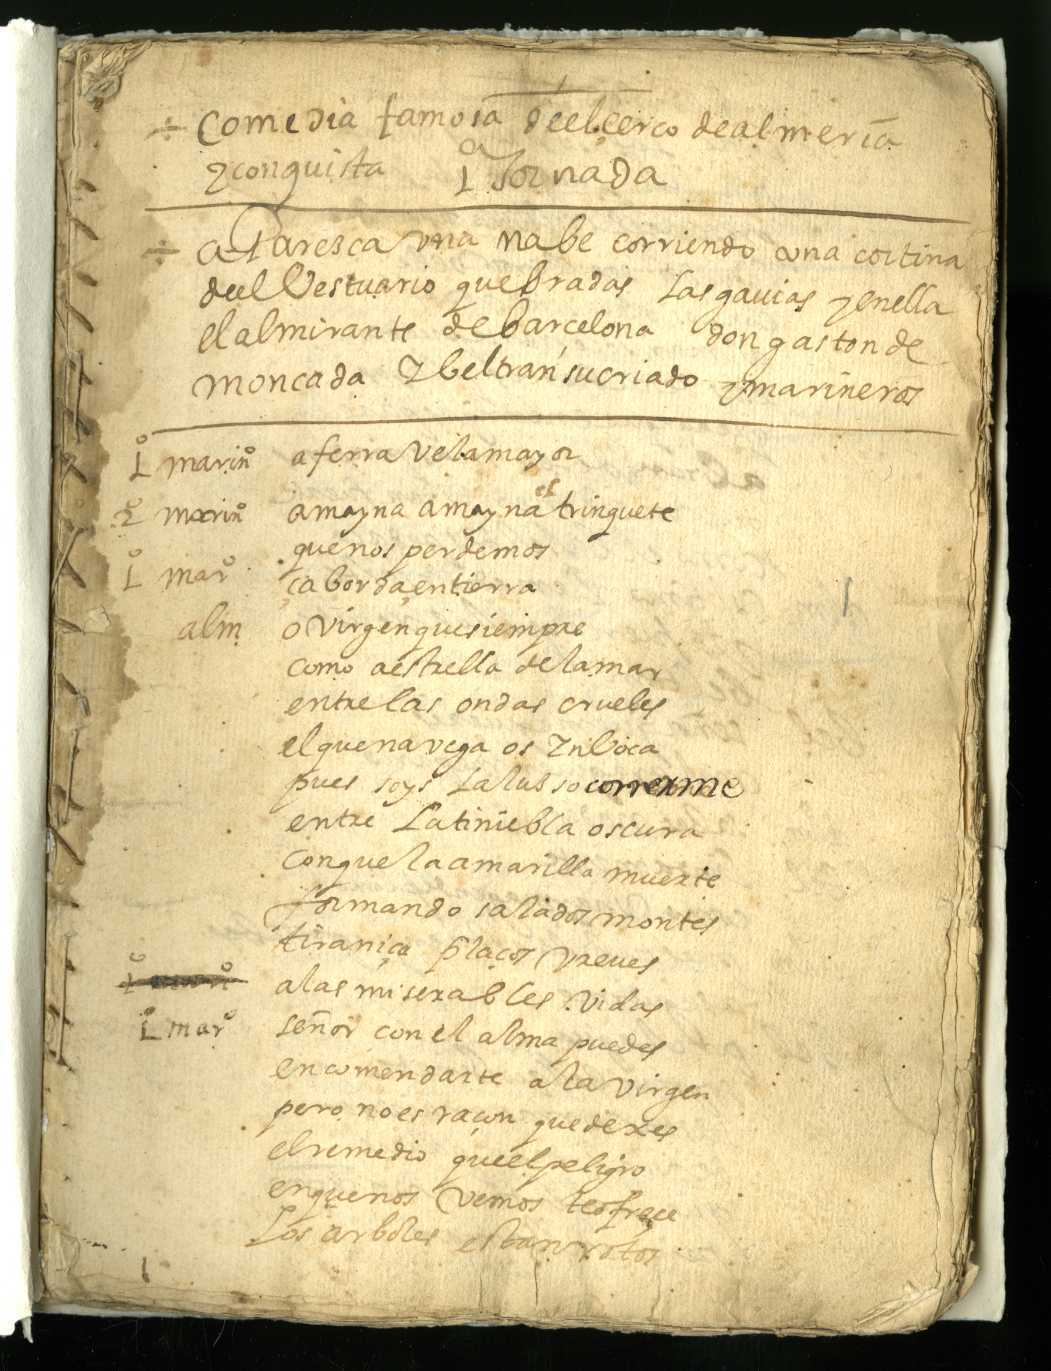 ÷ Comedia famosa deel cerco de almeria
y conquista 1ª Jornada
÷ aParesca vna nabe corriendo vna cortina
deel Vestuario quebradas las gauias y enella
el almirante de barcelona don gaston de
moncada y beltran su criado y marineros
1º marinº aferra vela mayor
2º marinº amayna amayna el trinquete
que nos perdemos
1º marº çaborda en tierra
alm o virgen que siempre
como a estrella de la mar
entre las ondas crueles
el que navega os ynvoca
pues soys la luz socorrerme
entre la tiniebla oscura
con que la amarilla muerte
formando salados montes
tiraniça plaços vreues
a las miserables vidas
1º marº señor con el alma puedes
encomendarte a la virgen
pero no es raçon que dexes
el remedio que el peligro
en que nos vemos te ofrece
los arboles estan rotos
1